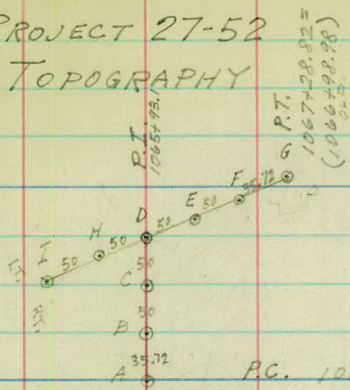 PROJECT 27-52
TOPOGRAPHY
P.I.
1065+93.1
P.T.
1067+28.82=
(1066+98.98)
G
35.72
F
50
E
50
D
50
H
50
I
50
C
50
B
35.72
A
P.C. 10